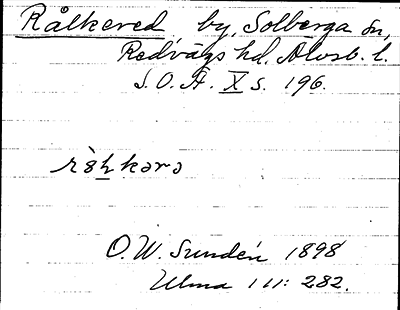 Rålkered, by, Solberga sn,
Redvägs hd. Älvsb. l.
S.O.Ä. X s. 196.
rȯhkərə
O. W. Sundén 1898
Ulma 111: 282.